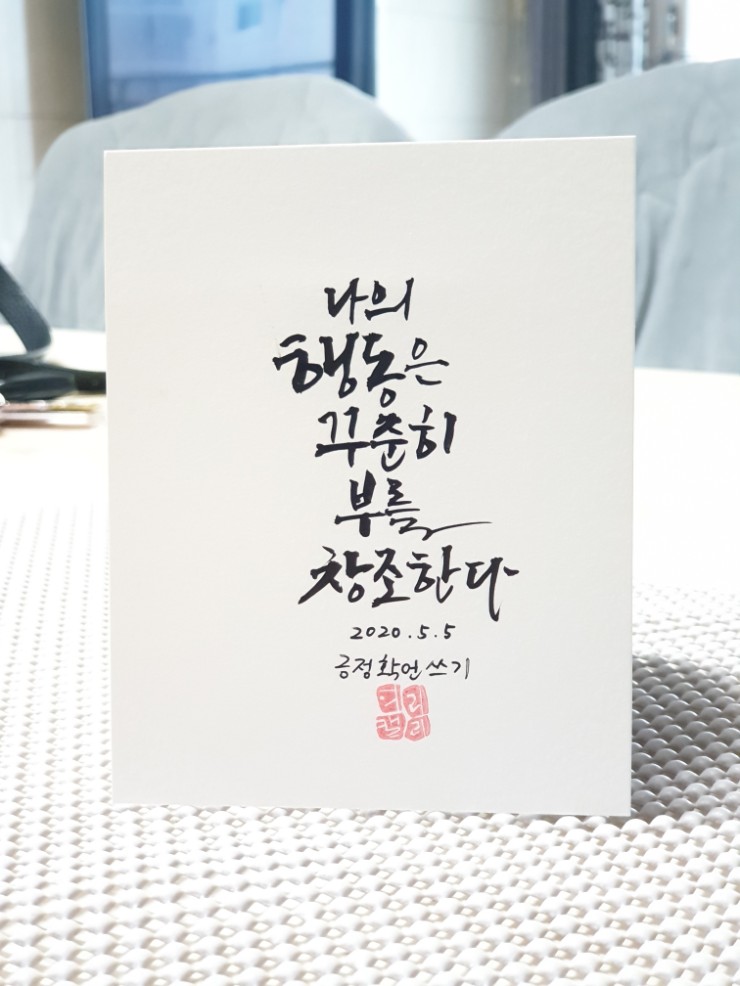 나의
행동은
꾸준히
부를
창조한다
2020.5.5
긍정확언쓰기